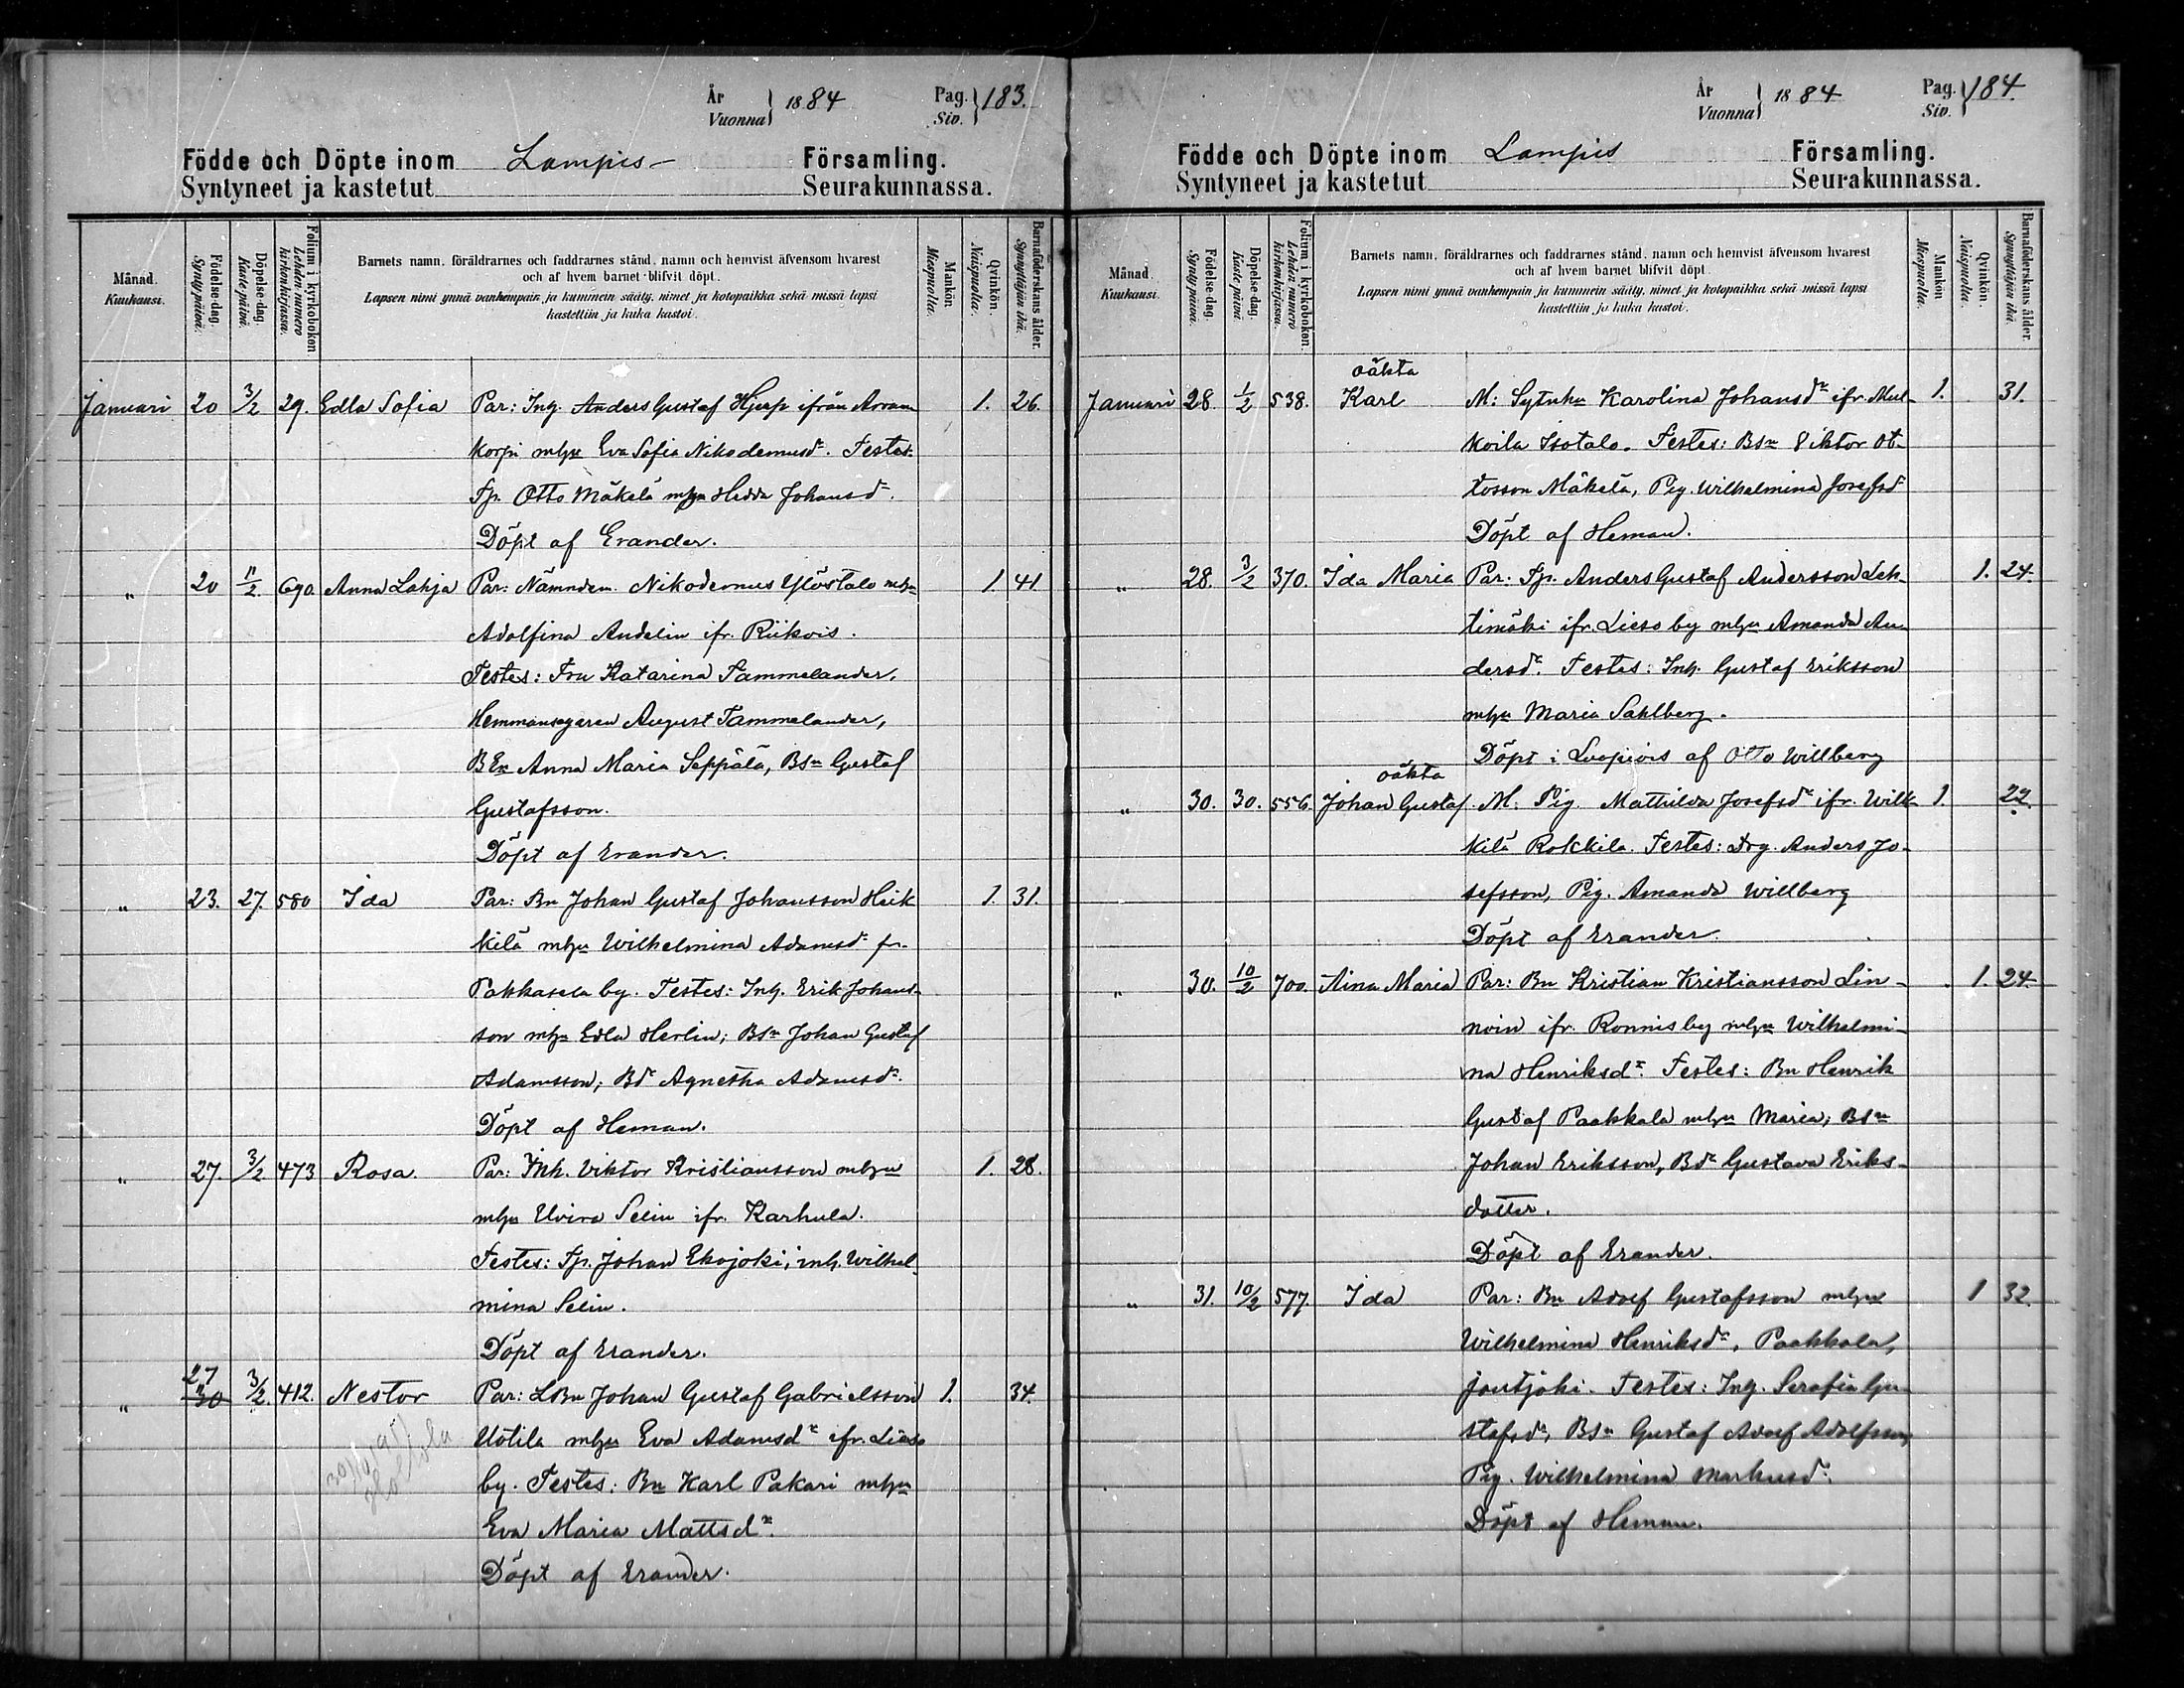 År
Vuonna } 1884 Pag.
Siv. } 183.
Födde och Döpte inom Lampis Församling.
Syntyneet ja kastetut Seurakunnassa.
Månad.
Kuukausi.
Födelse-dag.
Synty päivä.
Döpelse-dag.
Kaste päivä.
Folium i kyrkobokon
Lehden numero
kirkonkirjassa.
Barnets namn, föräldrarnes och faddrarnes stånd, namn och hemvist äfvensom hvarest
och af hvem barnet blifvit döpt.
Lapsen nimi ynnä vanhempain ja kummein sääty, nimet ja kotopaikka sekä missä lapsi
kastettiin ja kuka kastoi.
Mankön
Miespuolia.
Qvinkön.
Naispuolia.
Barnaföderskans ålder.
Synnyttäjän ikä.
Januari 20 3/2 29. Edla Sofia Par: Ing. Anders Gustaf Hjerp ifrån Arran
korpi mhju Eva Sofia Nikodemusdr. Testes:
Tp. Otto Mäkelä mhju Hedda Johansdr.
Döpt af Erander.
" 20 11/2 690. Anna Lahja Par: Nämndem. Nikodemus Ylöstalo mhju 1. 41
Adolfina Andelin ifr. Riikois.
Testes: Fru Katarina Tammelander,
Hemmansegaren August Tammelander,
BEn Anna Maria Seppälä, Bsn Gustaf
Gustafsson.
Döpt af Erander.
" 23. 27. 580 Ida Par: Bn Johan Gustaf Johansson Heik 1. 31.
kilä mhju Wilhelmina Adamsdr fr.
Pakkasela by. Testes: Inh. Erik Johans-
son mhju Edla Herlin; Bsn Johan Gustaf
Adamsson; Bdr Agnetha Adamsdr.
Döpt af Heman.
" 27. 3/2 473 Rosa. Par: Inh. Viktor Kristiansson mhju 1. 28.
mhju Elvira Selin ifr. Karhula.
Testes: Tp. Johan Ekojoki; inh. Wilhel-
mina Selin.
Döpt af Erander.
27
" 30 3/2. 412. Nestor Par: LBn Johan Gustaf Gabrielsson 1. 34.
Uotila mhju Eva Adamsdr ifr. Lieso
by. Testes: Bn Karl Pakari mhju
Eva Maria Mattsdr.
Döpt af Erander.
År
Vuonna } 1884 Pag.
Siv. } 184.
Födde och Döpte inom Lampis Församling.
Syntyneet ja kastetut Seurakunnassa.
Månad.
Kuukausi.
Födelse-dag.
Synty päivä.
Döpelse-dag.
Kaste päivä.
Folium i kyrkobokon.
Lehden numero
kirkonkirjassa.
Barnets namn, föräldrarnes och faddrarnes stånd, namn och hemvist äfvensom hvarest
och af hvem barnet blifvit döpt.
Lapsen nimi ynnä vanhempain ja kummein sääty, nimet ja kotopaikka sekä missä lapsi
kastettiin ja kuka kastoi.
Mankön
Miespuolia.
Qvinkön.
Naispuolia.
Barnaföderskans ålder.
Synnyttäjän ikä.
oäkta
Januari 28. 1/2 538. Karl M: Karolina Johansdr ifr. Mul 1. 31.
koila Isotalo. Testes: Bsn Viktor Ot-
tosson Mäkelä, Pig. Wilhelmina Josefsd
Döpt af Heman.
" 28. 3/2 370. Ida Maria Par: Tp. Anders Gustaf Andersson Leh- 1. 24.
timäki ifr. Lieso by mhju Amanda An-
dersdr. Testes: Inh. Gustaf Eriksson
mhju Maria Sahlberg.
Döpt i Luopiois af Otto Willberg
oäkta
" 30. 30. 556. Johan Gustaf M: Pig. Mathilda Josefsdr ifr. Wilk- 1. 22.
kilä Rokkila. Testes: Drg. Anders Jo-
sefsson, Pig. Amanda Willberg
Döpt af Erander.
" 30. 10/2 700. Aina Maria Par: Bn Kristian Kristiansson Lin- 1. 24.
noin ifr. Ronnis by mhju Wilhelmi-
na Henriksdr. Testes: Bn Henrik
Gustaf Paakkala mhju Maria; Bsn
Johan Eriksson, Bdr Gustava Eriks-
dotter.
Döpt af Erander.
" 31. 10/2 577. Ida Par: Bn Adolf Gustafsson mhju 1 32.
Wilhelmina Henriksdr, Paakkala,
Joutjoki. Testes: Ing. Serafia Gu-
stafsdr, Bsn Gustaf Adolf Adolfsson,
Pig. Wilhelmina Markusdr.
Döpt af Heman.